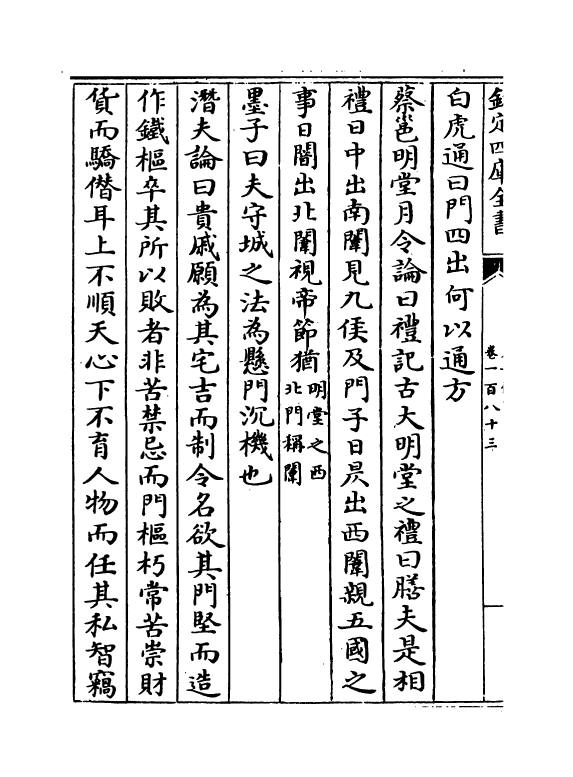 欽定四庫全書
卷一百八十三
白虎通曰門四出何以通方
蔡邕明堂月令論曰禮記古大明堂之禮曰膳夫是相
禮日中出南闈見九侯及門子日昃出西闈親五國之
事日闇出北闈視帝節猶明堂之西北門稱闈
墨子曰夫守城之法為懸門沉機也
潛夫論曰貴戚願為其宅吉而制令名欲其門堅而造
作鐵樞卒其所以敗者非苦禁忌而門樞朽常苦崇財
貨而驕僭耳上不順天心下不育人物而任其私智竊